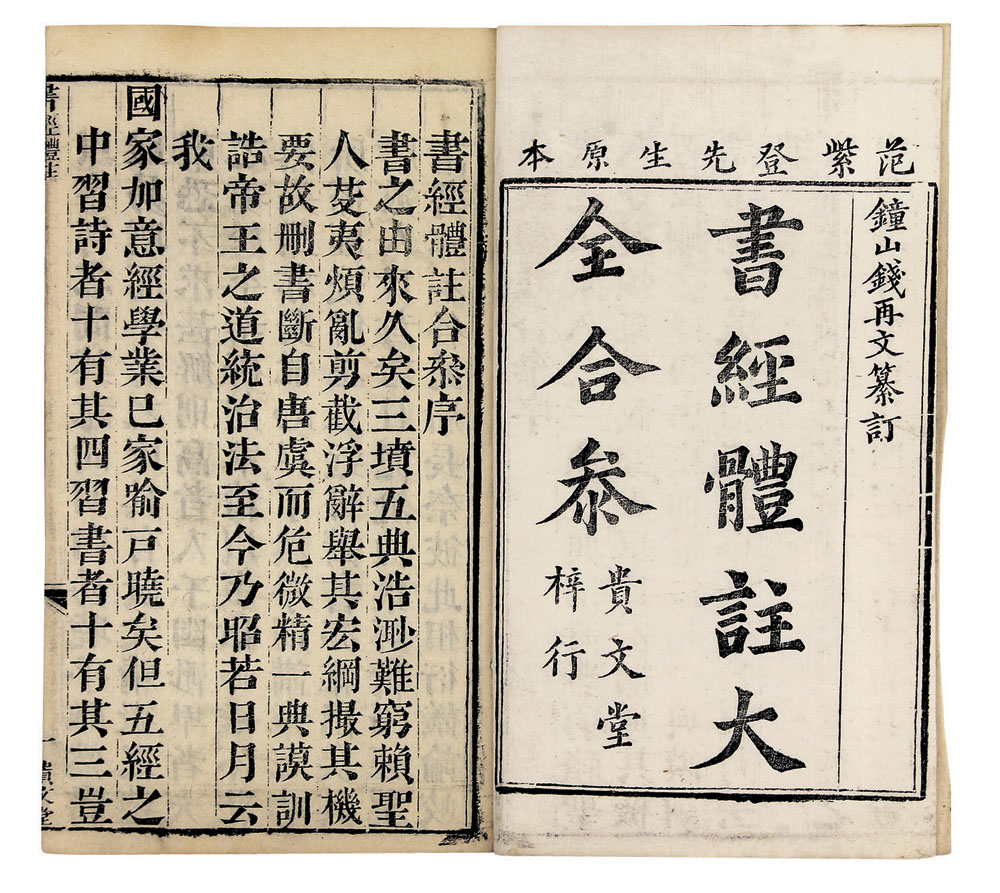 范紫登先生原本
鐘山錢再文纂訂
書經體註大
全合叅
貴文堂
梓行
書經體註合叅序
書之由來久矣三墳五典浩渺難窮賴聖
人芟夷煩亂剪截浮辭舉其宏綱撮其機
要故刪書斷自唐虞而危微精一典謨訓
誥帝王之道統治法至今乃昭若日月云
我
國家加意經學業已家喻戸曉矣但五經之
中習詩者十有其四習書者十有其三豈
書經體註
一
貴文堂